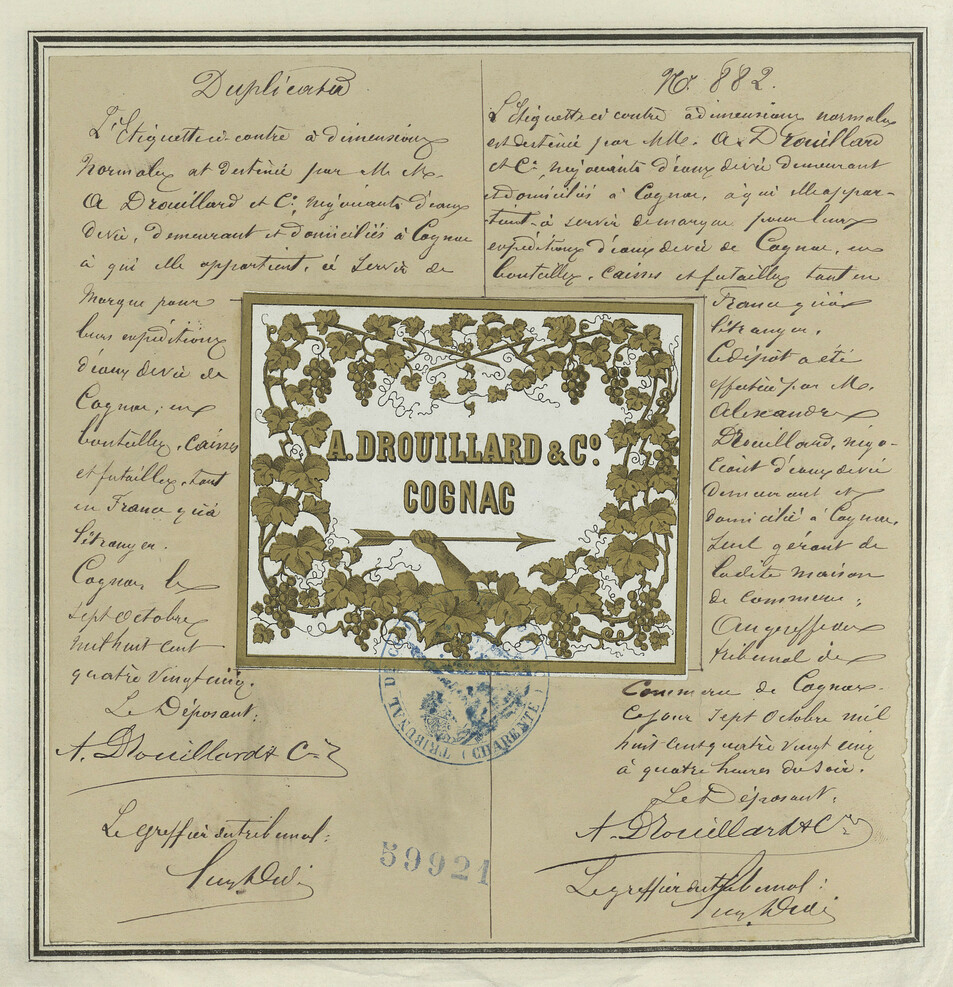 Duplicata
L'Etiquette ci-contre à dimensions
Normales est destinée par M. M.
A Drouillard et Cie, négociants d'eaux
de vie, demeurant et domiciliés à Cognac
à qui elle appartient, à servir de
marque pour
leurs expéditions
d'eaux de vie de
Cognac, en
bouteilles, caisses
et futailles, tant
en France qu'à
l'étranger.
Cognac le
sept Octobre
mil huit cent
quatre vingt cinq.
Le Déposant:
A. Drouillard & Cie
Le greffier du tribunal:
No. 882.
L'Etiquette ci contre à dimensions normales
est destinée par MM. A. Drouillard
et Cie, négociants d'eaux de vie demeurant
et domiciliés à Cognac, à qui elle appar-
tient à servir de marque pour leurs
expéditions d'eaux de vie de Cognac, en
bouteilles, caisses et futailles tant en
France qu'à
l'étranger.
Le dépôt a été
effectué par M.
Alexandre
Drouillard, négo-
ciant d'eaux de vie
demeurant et
domicilié à Cognac,
seul gérant de
la dite maison
de commerce;
Au greffe du
tribunal de
Commerce de Cognac
Ce jour sept Octobre mil
huit cent quatre vingt cinq
à quatre heures du soir.
Le Déposant:
A. Drouillard & Cie
Le greffier du tribunal:
A. DROUILLARD & Co.
COGNAC
TRIBUNAL DE
(CHARENTE)
59921